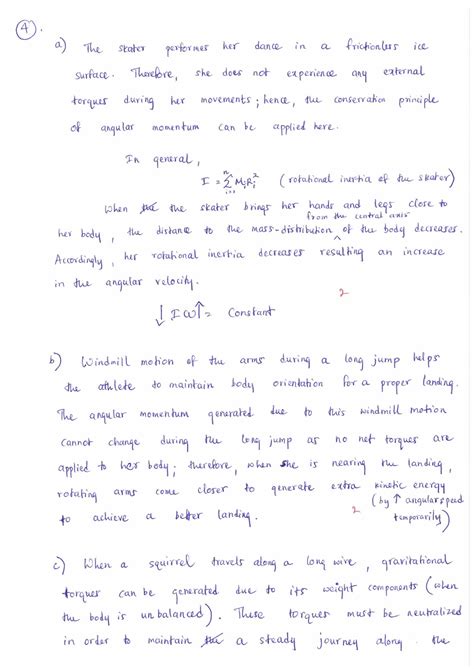 4.
a) The skater performes her dance in a frictionless ice
surface. Therefore, she does not experience any external
torques during her movements; hence, the conservation principle
of angular momentum can be applied here.
In general,
I = Σ MiRi² (rotational inertia of the skater)
n
i=1
When the the skater brings her hands and legs close to
from the central axis
her body, the distance to the mass-distribution ^ of the body decreases.
Accordingly, her rotational inertia decreases resulting an increase
in the angular velocity.
2
↓ I ω ↑ = Constant
b) Windmill motion of the arms during a long jump helps
the athlete to maintain body orientation for a proper landing.
The angular momentum generated due to this windmill motion
cannot change during the long jump as no net torques are
applied to her body; therefore, when she is nearing the landing,
rotating arms come closer to generate extra kinetic energy
(by ↑ angular speed
to achieve a better landing. 2 temporarily)
c) When a squirrel travels along a long wire, gravitational
torques can be generated due to its weight components (when
the body is unbalanced). These torques must be neutralized
in order to maintain the a steady journey along the